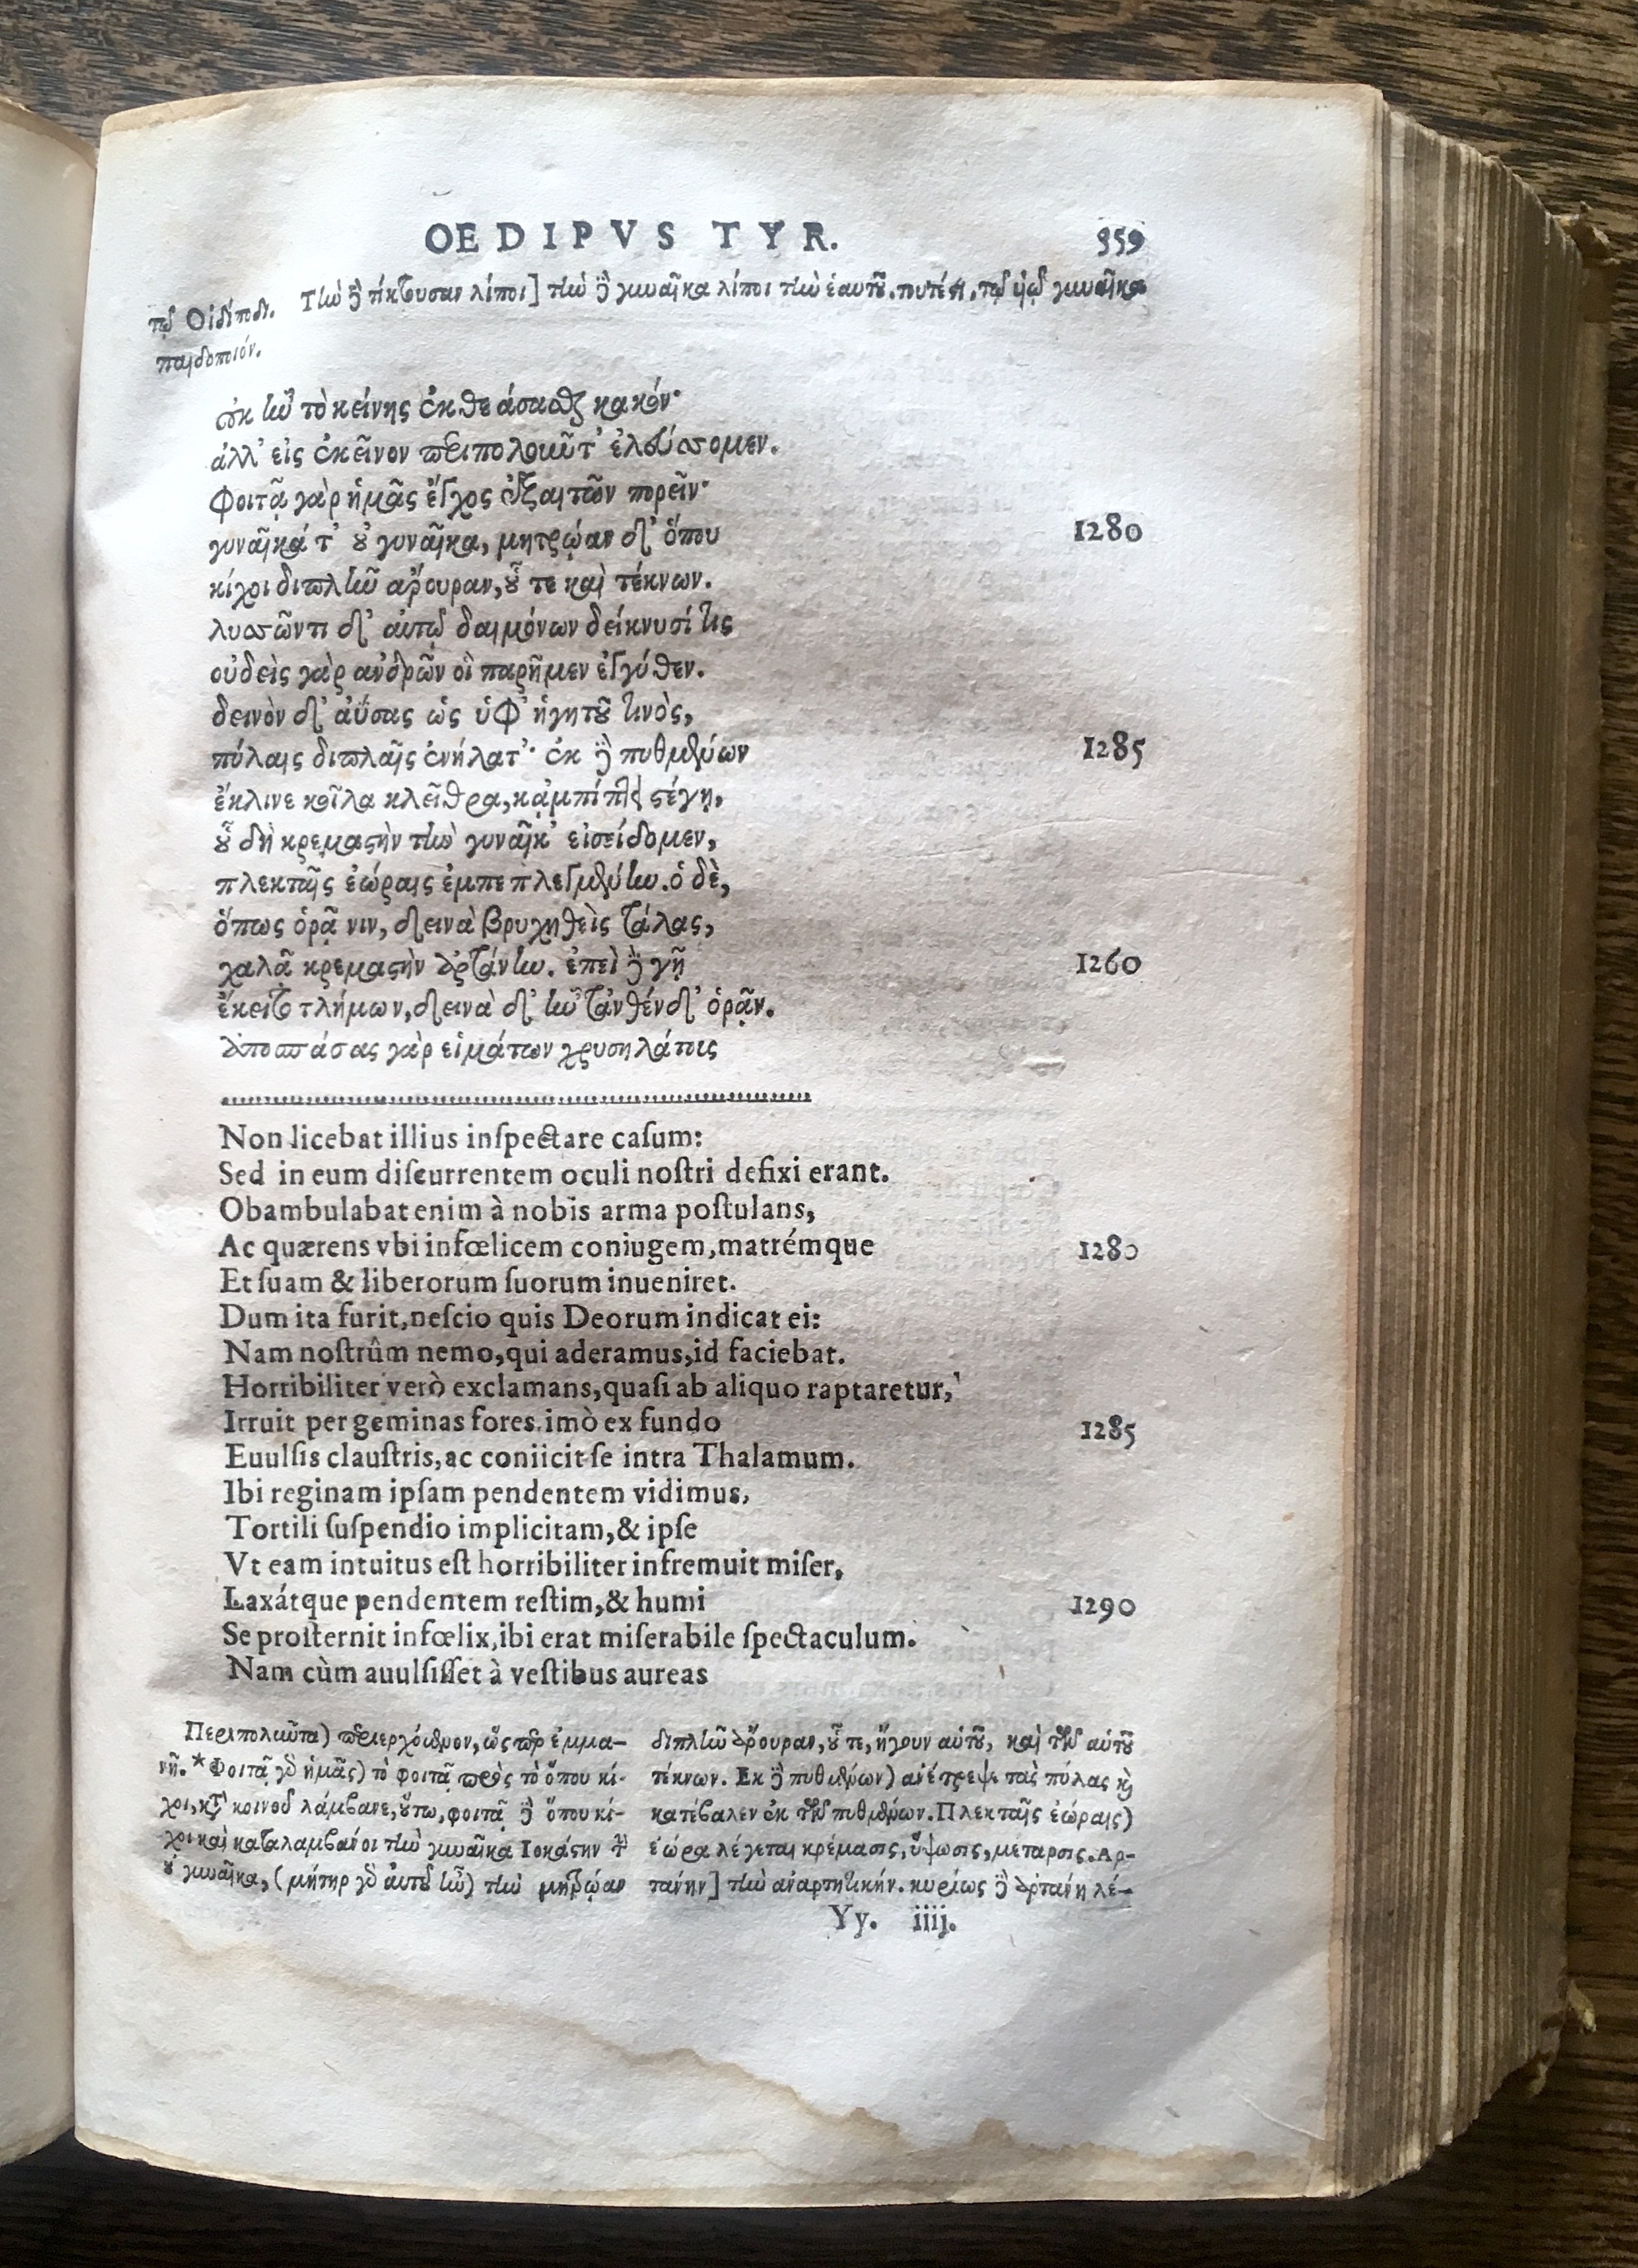 OEDIPVS TYR. 959
Τὴν δὲ τίκτουσαν λίποι] τὴν δὲ γυναῖκα λίποι τὴν ἑαυτοῦ. τουτέστι, τῷ υἱῷ γυναῖκα
τῷ Οἰδίποδι.
παιδοποιόν.
οὐκ ἦν τὸ κείνης ἐκθεάσασθαι κακόν·
ἀλλ' εἰς ἐκεῖνον περιπολοῦντ' ἐλεύσσομεν.
Φοιτᾷ γὰρ ἡμᾶς ἔγχος ἐξαιτῶν πορεῖν·
γυναῖκά τ' οὐ γυναῖκα, μητρῴαν δ' ὅπου 1280
κίχοι διπλῆν ἄρουραν, οὗ τε καὶ τέκνων.
λυσσῶντι δ' αὐτῷ δαιμόνων δείκνυσί τις
οὐδεὶς γὰρ ἀνδρῶν οἳ παρῆμεν ἐγγύθεν.
δεινὸν δ' ἀΰσας ὡς ὑφ' ἡγητοῦ τινὸς,
πύλαις διπλαῖς ἐνήλατ'· ἐκ δὲ πυθμένων 1285
ἔκλινε κοῖλα κλεῖθρα, κἀμπίπτει στέγῃ,
οὗ δὴ κρεμαστὴν τὴν γυναῖκ' εἰσείδομεν,
πλεκταῖς ἐώραις ἐμπεπλεγμένην. ὁ δὲ,
ὅπως ὁρᾷ νιν, δεινὰ βρυχηθεὶς τάλας,
χαλᾷ κρεμαστὴν ἀρτάνην. ἐπεὶ δὲ γῇ 1260
ἔκειτο τλήμων, δεινὰ δ' ἦν τἀνθένδ' ὁρᾷν.
ἀποσπάσας γὰρ εἱμάτων χρυσηλάτους
Non licebat illius inſpectare caſum:
Sed in eum diſcurrentem oculi noſtri defixi erant.
Obambulabat enim à nobis arma poſtulans,
Ac quærens vbi infœlicem coniugem, matrémque 1280
Et ſuam & liberorum ſuorum inueniret.
Dum ita furit, neſcio quis Deorum indicat ei:
Nam noſtrûm nemo, qui aderamus, id faciebat.
Horribiliter verò exclamans, quaſi ab aliquo raptaretur,
Irruit per geminas fores. imò ex fundo 1285
Euulſis clauſtris, ac coniicit ſe intra Thalamum.
Ibi reginam ipſam pendentem vidimus,
Tortili ſuſpendio implicitam, & ipſe
Vt eam intuitus eſt horribiliter infremuit miſer,
Laxátque pendentem reſtim, & humi 1290
Se proſternit infœlix, ibi erat miſerabile ſpectaculum.
Nam cùm auulſiſſet à veſtibus aureas
Περιπολοῦντα) περιερχόμενον, ὥσπερ ἐμμα-
νῆ. *Φοιτᾷ γὸ ἡμᾶς) τὸ φοιτᾷ πρὸς τὸ ὅπου κί-
χοι, κατὰ κοινοῦ λάμβανε, οὕτω, φοιτᾷ δὲ ὅπου κί-
χοι καὶ καταλαμβάνοι τὴν γυναῖκα Ἰοκάστην τὴν
οὐ γυναῖκα, (μήτηρ γὸ αὐτοῦ ἦν) τὴν μητρῴαν
διπλῆν ἄρουραν, οὗ τε, ἤγουν αὐτοῦ, καὶ τῶν αὐτοῦ
τέκνων. Ἐκ δὲ πυθμένων) ἀνέτρεψε τὰς πύλας καὶ
κατέβαλεν ἐκ τῶν πυθμένων. Πλεκταῖς ἐώραις)
ἐώρα λέγεται κρέμασις, ὕψωσις, μέταρσις. Ἀρ-
τάνην] τὴν ἀναρτητικήν. κυρίως δὲ ἀρτάνη λέ-
Yy. iiij.